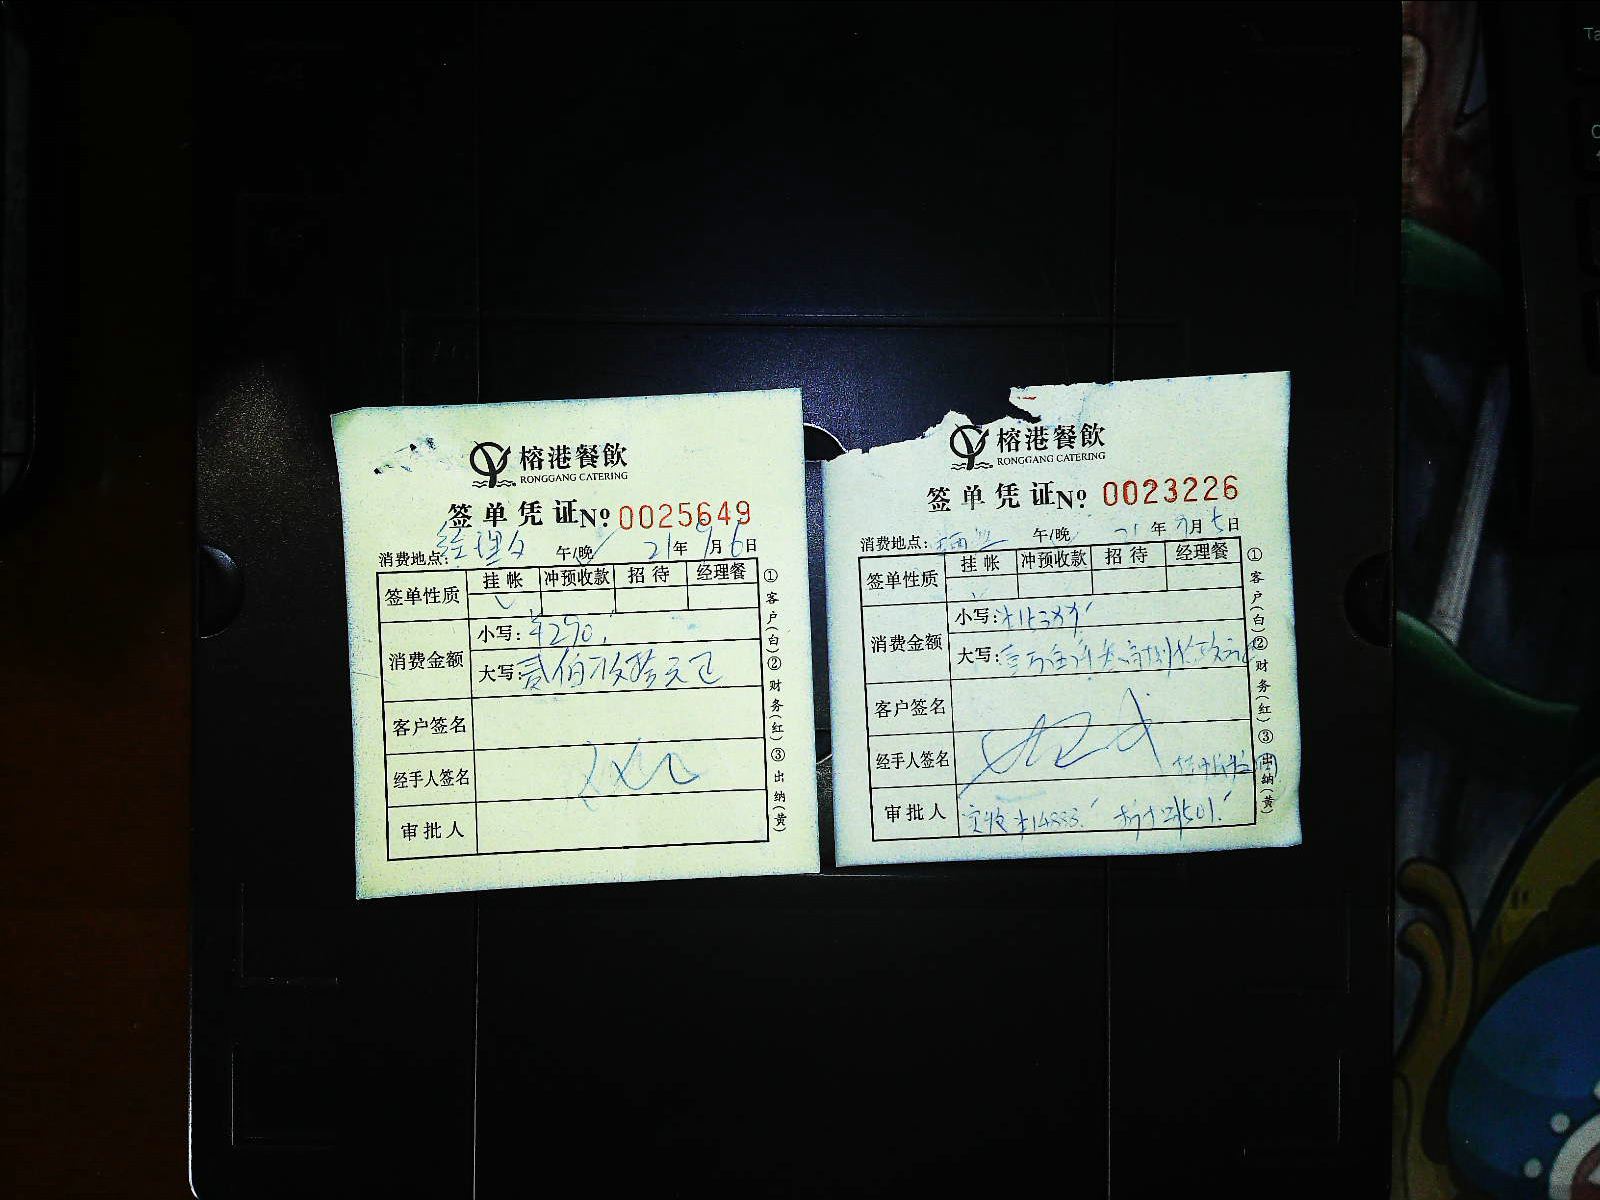 榕港餐飲
RONGGANG CATERING
签单凭证№ 0025649
消费地点: 午/晚 21年9月6日
签单性质 挂帐 冲预收款 招待 经理餐
消费金额
小写: ¥290.
大写: 贰佰玖拾元正
客户签名
经手人签名
审批人
①客户(白)②财务(红)③出纳(黄)
榕港餐飲
RONGGANG CATERING
签单凭证№ 0023226
消费地点: 午/晚 21年 月5日
签单性质 挂帐 冲预收款 招待 经理餐
消费金额
小写:
大写:
客户签名
经手人签名
审批人 实收
①客户(白)②财务(红)③出纳(黄)
Ta